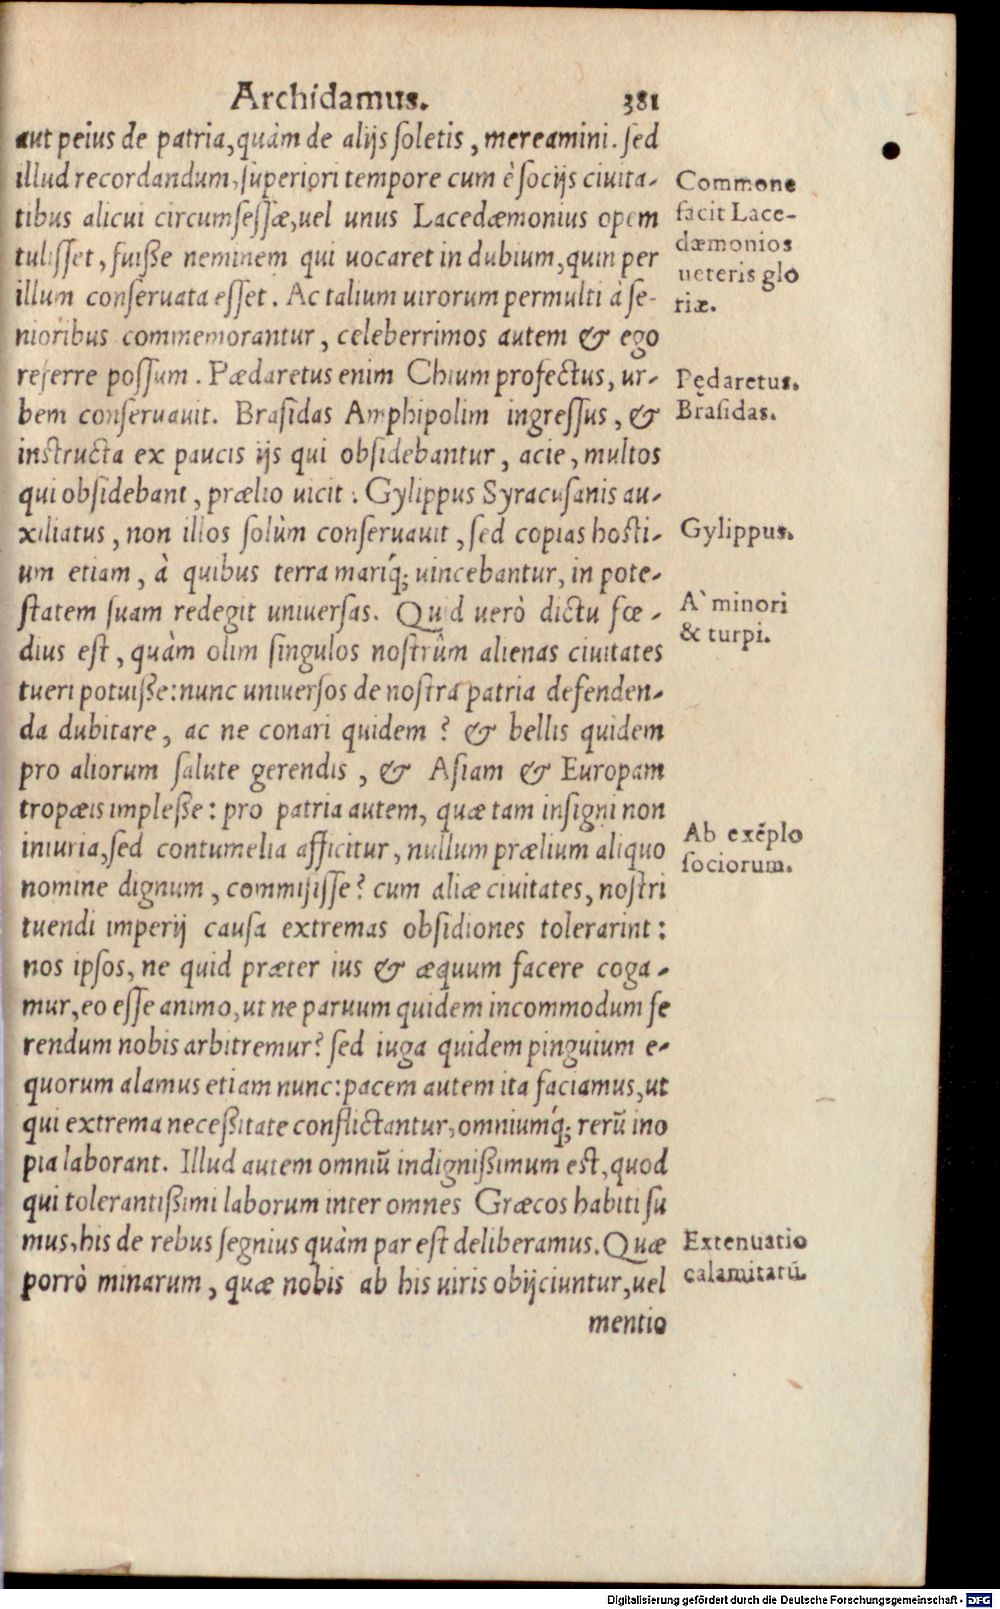 Archidamus. 381
aut peius de patria, quàm de alijs soletis, mereamini. sed
illud recordandum, superiori tempore cum è socijs ciuita-
tibus alicui circumsessæ, uel unus Lacedæmonius opem
tulisset, fuiße neminem qui uocaret in dubium, quin per
illum conseruata esset. Ac talium uirorum permulti à se-
nioribus commemorantur, celeberrimos autem & ego
referre possum. Pædaretus enim Chium profectus, ur-
bem conseruauit. Brasidas Amphipolim ingressus, &
instructa ex paucis ijs qui obsidebantur, acie, multos
qui obsidebant, prælio uicit: Gylippus Syracusanis au-
xiliatus, non illos solùm conseruauit, sed copias hosti-
um etiam, à quibus terra mariq́; uincebantur, in pote-
statem suam redegit uniuersas. Quid uerò dictu fœ-
dius est, quàm olim singulos nostrûm alienas ciuitates
tueri potuiße: nunc uniuersos de nostra patria defenden-
da dubitare, ac ne conari quidem? & bellis quidem
pro aliorum salute gerendis, & Asiam & Europam
tropæis impleße: pro patria autem, quæ tam insigni non
iniuria, sed contumelia afficitur, nullum prælium aliquo
nomine dignum, commisisse? cum aliæ ciuitates, nostri
tuendi imperij causa extremas obsidiones tolerarint:
nos ipsos, ne quid præter ius & æquum facere coga-
mur, eo esse animo, ut ne paruum quidem incommodum fe
rendum nobis arbitremur? sed iuga quidem pinguium e-
quorum alamus etiam nunc: pacem autem ita faciamus, ut
qui extrema neceßitate conflictantur, omniumq́; rerũ ino
pia laborant. Illud autem omniũ indignißimum est, quod
qui tolerantißimi laborum inter omnes Græcos habiti su
mus, his de rebus segnius quàm par est deliberamus. Quæ
porrò minarum, quæ nobis ab his uiris obijciuntur, uel
mentio
Commone
facit Lace-
dæmonios
ueteris glo
riæ.
Pędaretus.
Brasidas.
Gylippus.
A` minori
& turpi.
Ab exẽplo
sociorum.
Extenuatio
calamitatũ.
Digitalisierung gefördert durch die Deutsche Forschungsgemeinschaft - DFG